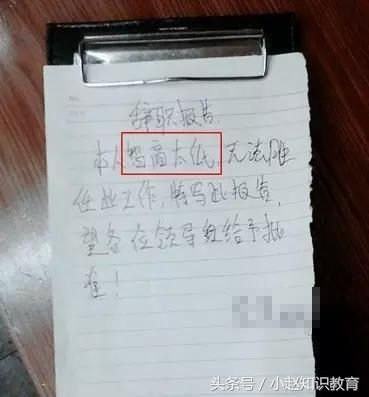 辞职报告
本人智商太低,无法胜
任此工作,特写此报告,
望各位领导给予批
准!
头条号/小赵知识教育